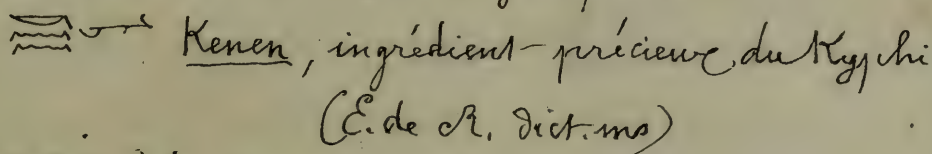 Kenen, ingrédient précieux du Kyphi
(E. de R. dict. ms)